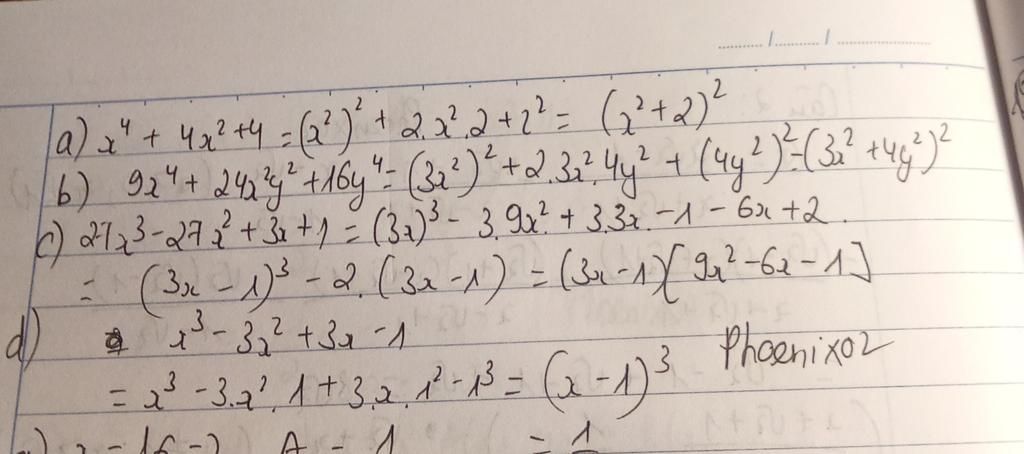 a) x⁴ + 4x² + 4 = (x²)² + 2.x².2 + 2² = (x² + 2)²
b) 9x⁴ + 24x²y² + 16y⁴ = (3x²)² + 2.3x².4y² + (4y²)² = (3x² + 4y²)²
c) 27x³ - 27x² + 3x + 1 = (3x)³ - 3.9x² + 3.3x - 1 - 6x + 2
= (3x - 1)³ - 2.(3x - 1) = (3x - 1)[9x² - 6x - 1]
d) x³ - 3x² + 3x - 1
= x³ - 3.x².1 + 3.x.1² - 1³ = (x - 1)³ Phoenix02